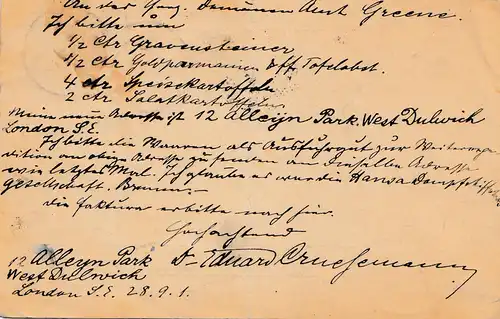 An das Gräfl. Domänen Amt Greene.
Ich bitte um
1/2 Ctr Gravensteiner
1/2 Ctr Goldparmainen Eff Tafelobst.
4 ctr Speisekartoffeln
2 ctr Salatkartoffeln
Meine neue Adresse ist 12 Alleyn Park. West Dulwich
London S.E.
Ich bitte die Waaren als Ausfuhrgut zur Weiterexpe
dition an obige Adresse zu senden an dieselbe Adresse
wie letztes Mal. Ich glaube es war die Hansa Dampfschiffahrts
gesellschaft. Bremen.
die Faktura erbitte nach hier.
Hochachtend
12 Alleyn Park Dr Eduard Cruesemann
West Dulwich
London S.E. 28.9.1.